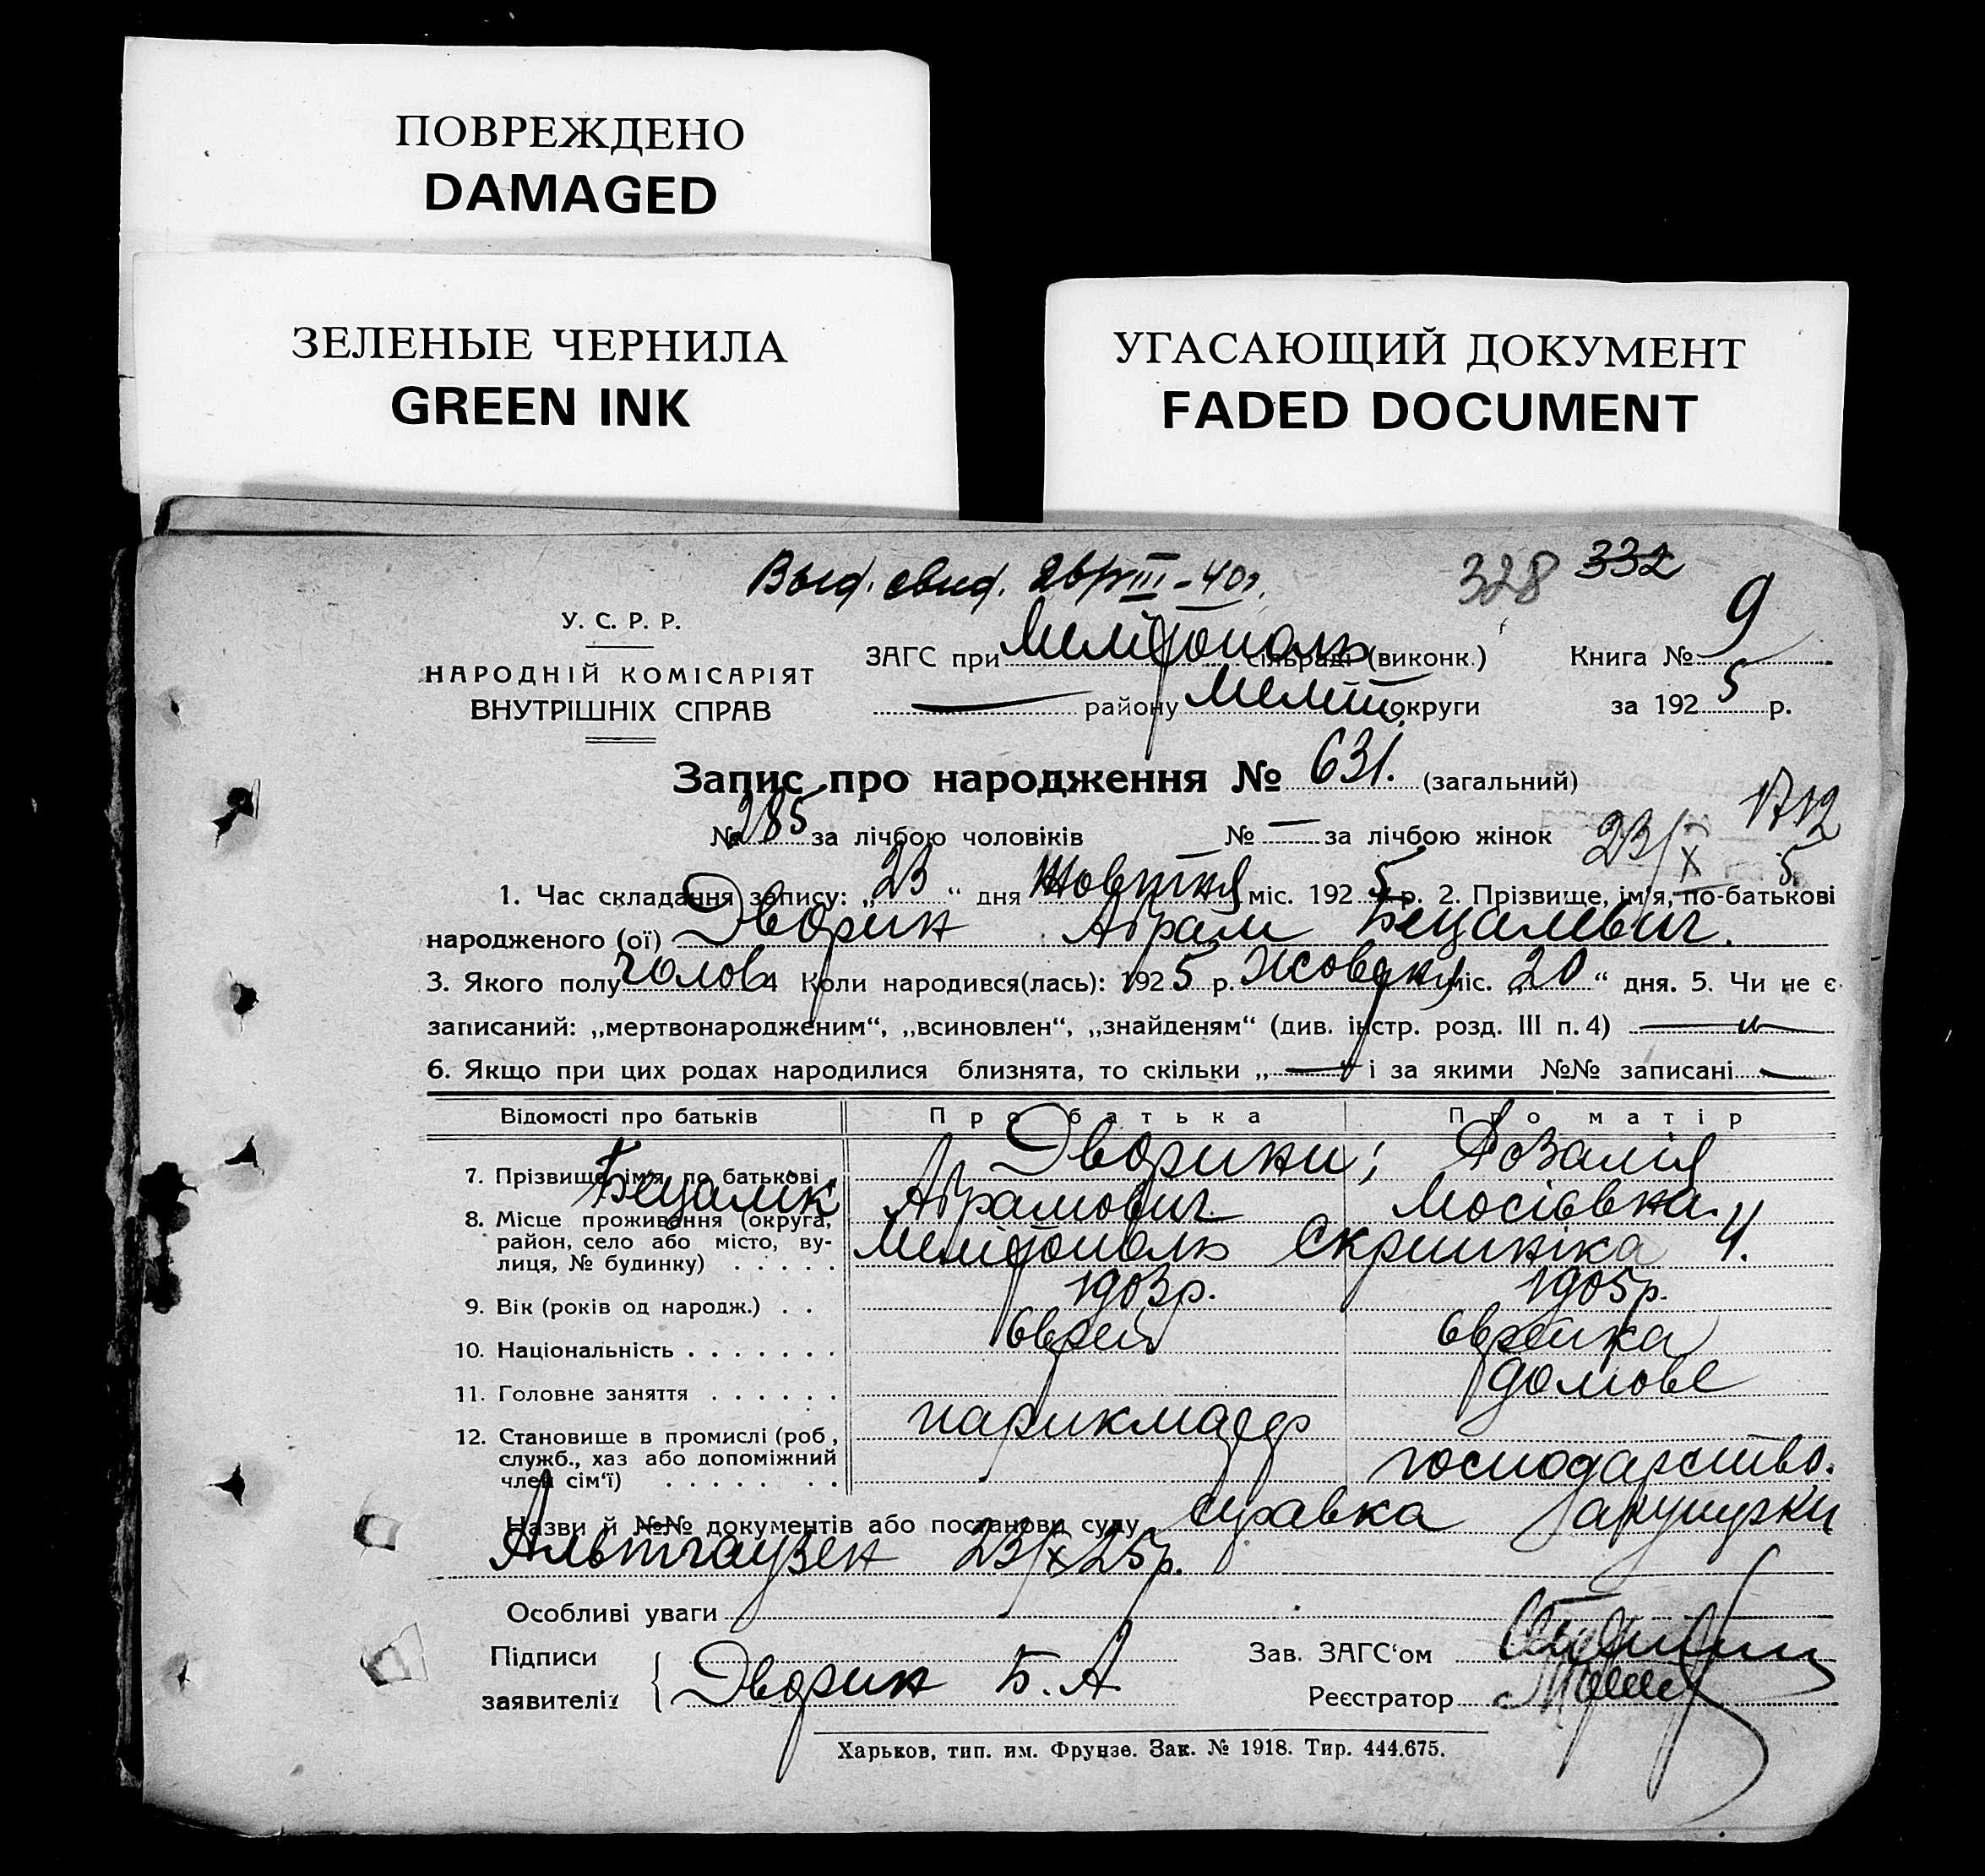 ПОВРЕЖДЕНО
DAMAGED
ЗЕЛЕНЫЕ ЧЕРНИЛА
GREEN INK
УГАСАЮЩИЙ ДОКУМЕНТ
FADED DOCUMENT
Выд. свид. 26/III-40г.
328 332
У. С. Р. Р.
НАРОДНІЙ КОМІСАРІЯТ
ВНУТРІШНІХ СПРАВ
ЗАГС при Мелітополь сільраді (виконк.) Книга № 9
— району Меліт. округи за 192 5 р.
Запис про народження № 631. (загальний)
№ 285 за лічбою чоловіків № — за лічбою жінок 23/X 5
1. Час складання запису: „ 23 “ дня Жовтня міс. 192 5 р. 2. Прізвище, ім'я, по-батькові
народженого (ої) Дворин Абрам Бецалевич.
3. Якого полу чолов. 4 Коли народився(лась): 192 5 р. жовтня міс. „ 20 “ дня. 5. Чи не є
записаний: „мертвонародженим“, „всиновлен“, „знайденям“ (див. інстр. розд. III п. 4) —„—
6. Якщо при цих родах народилися близнята, то скільки „ — “ і за якими №№ записані —
Відомості про батьків Про батька Про матір
7. Прізвище, ім'я, по батькові Дворини; Розалія
Бецалик Абрамович Мосіевна.
8. Місце проживання (округа, район, село або місто, вулиця, № будинку) . . . . . Мелітополь Скрипніка 4.
9. Вік (років од народж.) . . 1903р. 1905р.
10. Національність . . . . . . . Єврей Єврейка
11. Головне заняття . . . . . . парикмахер домове
12. Становище в промислі (роб, служб., хаз або допоміжний член сім'ї) . . . . . . . господарство.
Назви й №№ документів або постанови суду справка акушерки
Альтгаузен 23/X 25р.
Особливі уваги
Підписи
заявителів { Дворин Б. А
Зав. ЗАГС'ом
Реєстратор
Харьков, тип. им. Фрунзе. Зак. № 1918. Тир. 444.675.